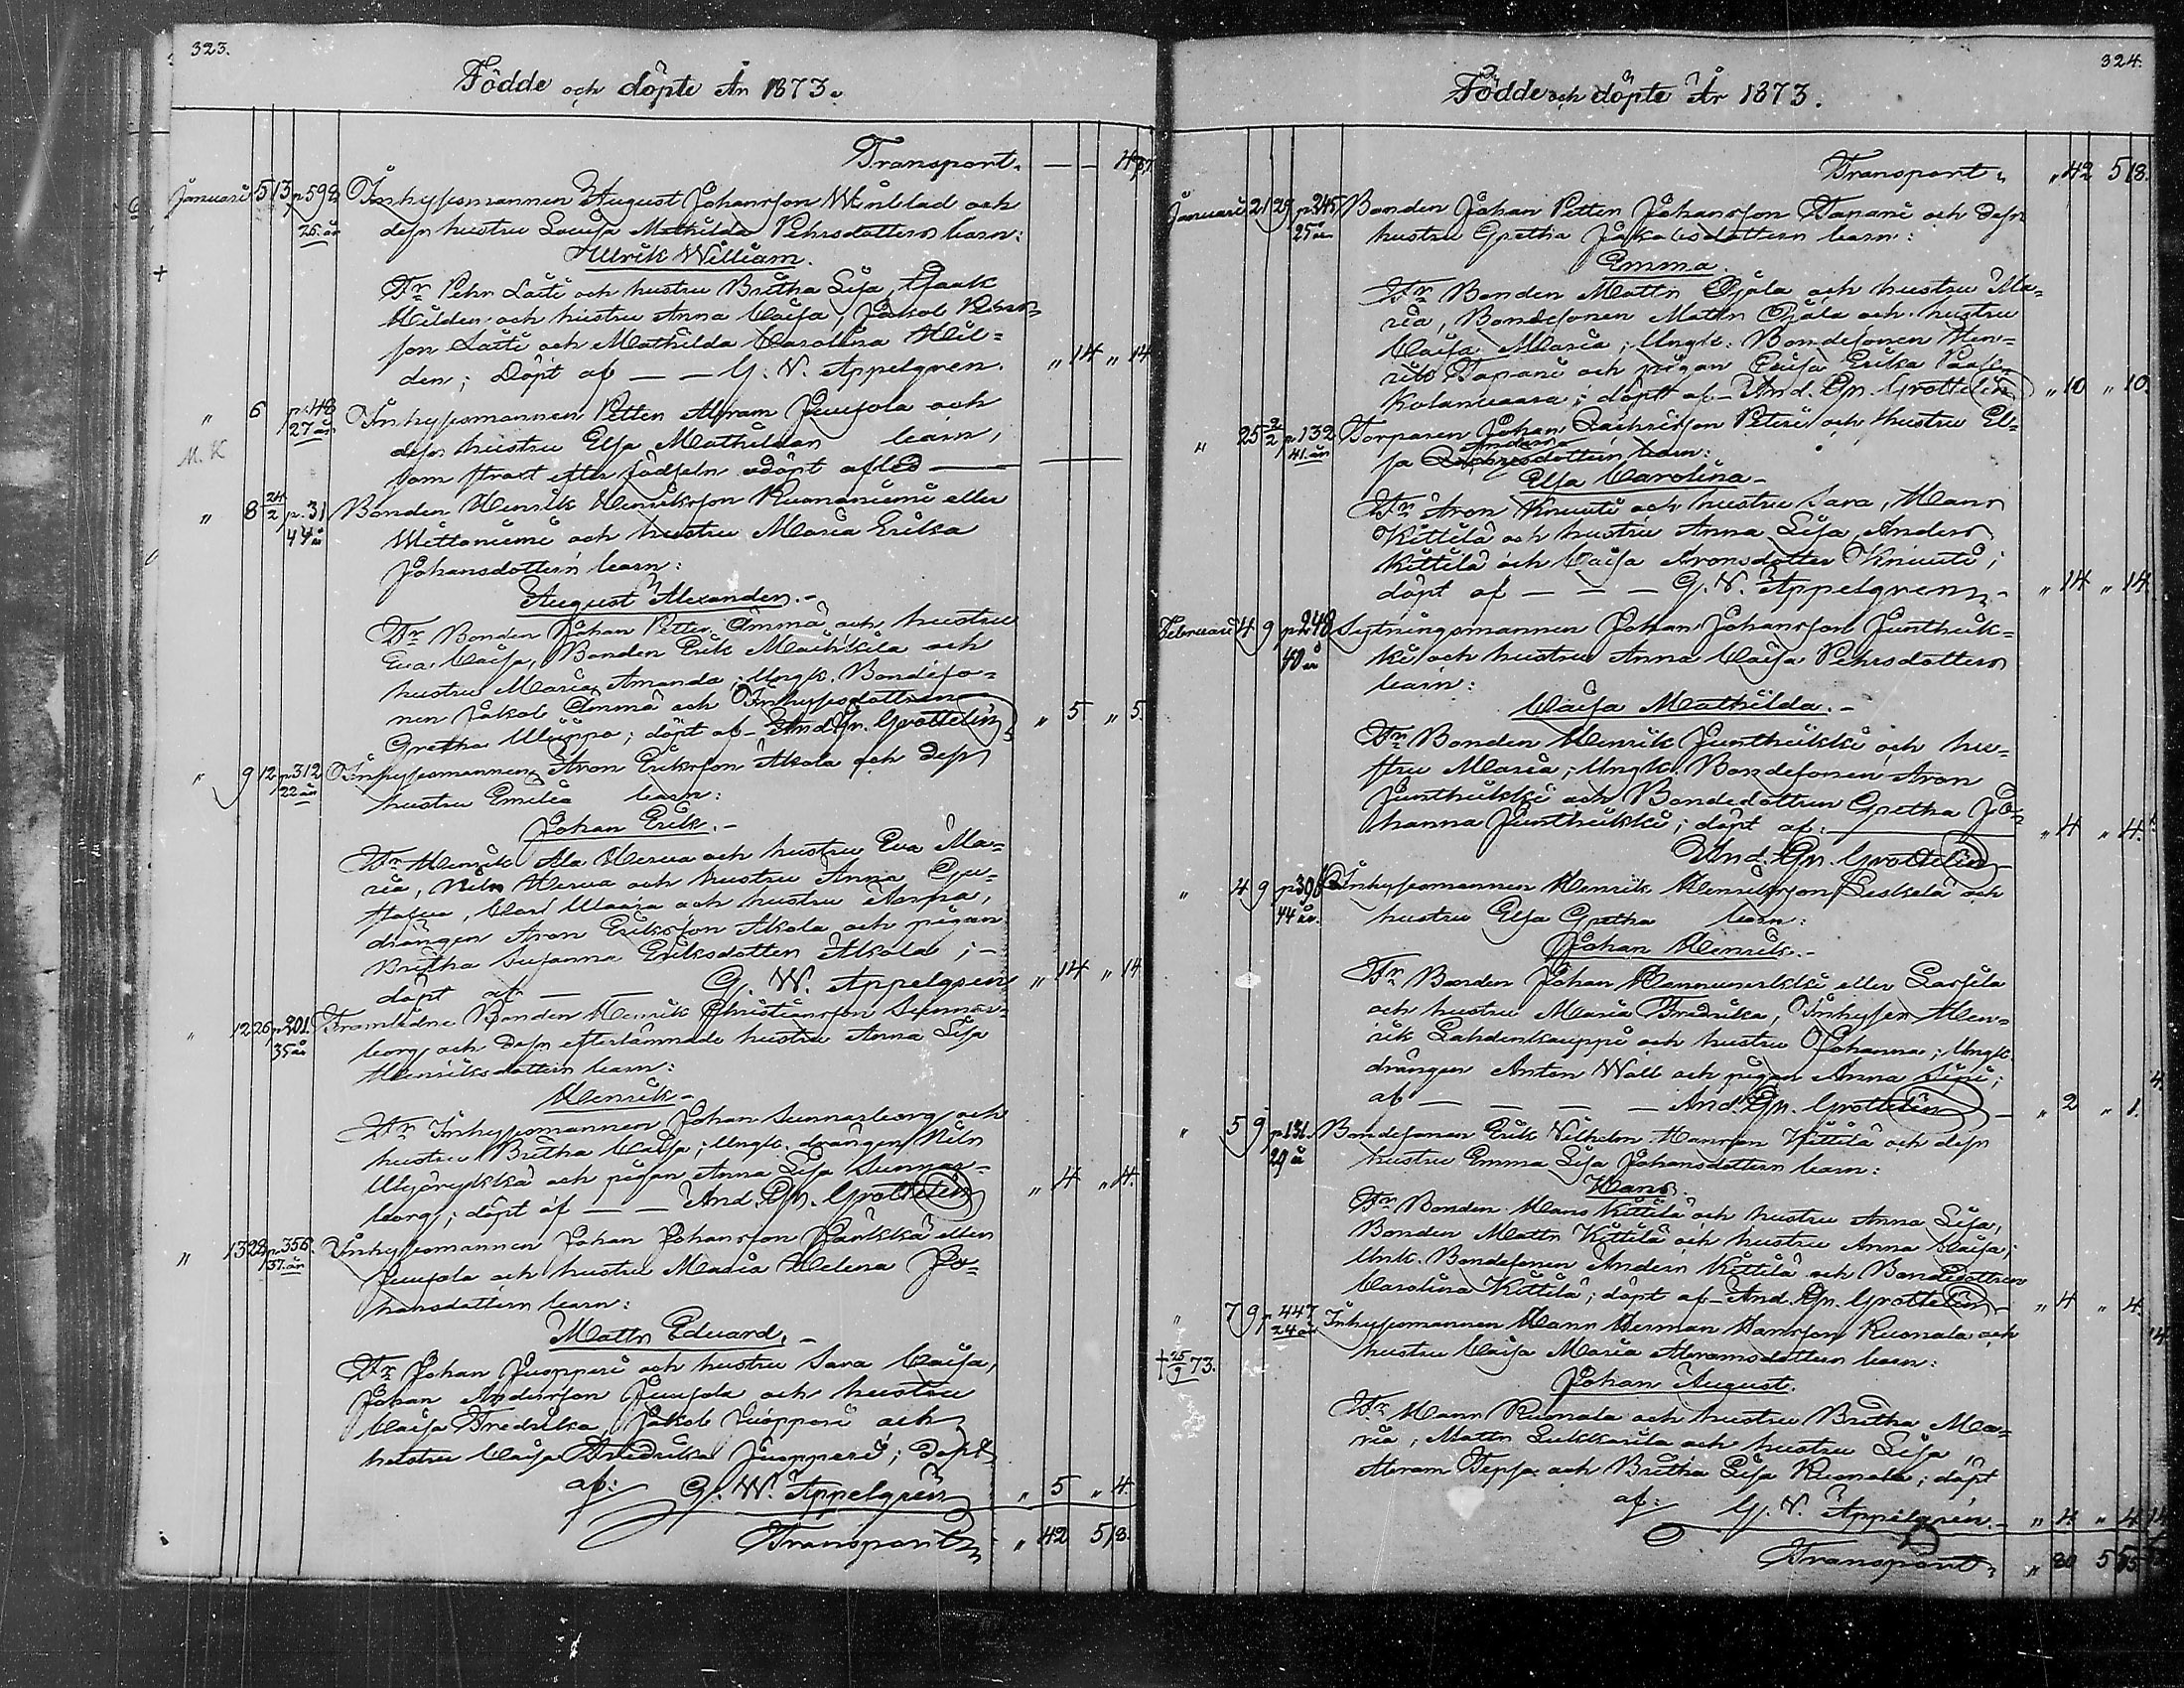 323.
Födde och döpte År 1873.
Transport. — —
Januari 5 13 p.592 Inhysesmannen August Johansson Winblad och
25 år dess hustru Lovisa Mathilda Pehrsdotters barn:
Ulrik William.
Fr Pehr Laiti och hustru Britha Lisa, Isaak
Hilden och hustru Anna Caisa, Jakob Pehrs-
son Laiti och Mathilda Carolina Hil-
den; Döpt af — — G. W. Appelgren. " 14 " 14
" 6 p.48 Inhysesmannen Petter Abram Juusola och
27 år
M. K dess hustru Elsa Mathildas barn,
som strart efter födseln odöpt afled —
" 8 24/2 p.31 Bonden Henrik Henriksson Ruonaniemi eller
44 år Mettoniemi och hustru Maria Erika
Johansdotters barn:
August Alexander. -
Fr Bonden Johan Petter Ämmä och hustru
Eva Caisa, Bonden Erik och
hustru Maria Amanda; Ungk. Bondeso-
nen Jakob Ämmä och Inhysesdottren
Gretha; döpt af - And. Gr. Grottelin " 5 " 5.
" 9 12 p.312 Inhysesmannen Aron Eriksson Akola och dess
22 år hustru Emilia barn:
Johan Erik. -
Fr Henrik Ala Herva och hustru Eva Ma-
ria, Nils Herva och hustru Anna Gu-
stafva, Carl och hustru Anna,
drängen Aron Eriksson Akola och pigan
Britha Susanna Eriksdotter Akola; -
döpt af — — G. W. Appelgren " 14 " 14
" 12 26 p.201. Framlidne Bonden Henrik Christiansson Sunnar-
35 år borg och dess efterlämnade hustru Anna Lisa
Henriksdotters barn:
Henrik -
Fr Inhysesmannen Johan Sunnarborg och
hustru Britha Caisa; Ungk. drängen Nils
och pigan Anna Lisa Sunnar-
borg; döpt af — — And. Gr. Grottelin " 4 " 4.
" 13 22 p.356. Inhysesmannen Johan Johansson Pärkkä eller
37. år Juusola och hustru Maria Helena Jo-
hansdotters barn:
Matts Eduard. -
Fr Johan Juopperi och hustru Sara Caisa,
Johan Andersson Juusola och hustru
Caisa Fredrika, Jakob Juopperi och
hustru Caisa Fredrika Juopperi; döpt
af: G. W. Appelgren " 5 " 4
Transport " 42 518
324.
Födde och döpte År 1873.
Transport. " 42 518.
Januari 21 25 p.245 Bonden Johan Petter Johansson Tapani och dess
25 år hustru Gretha Jakobsdotters barn:
Emma.
Fr Bonden Matts Ojala och hustru Ma-
ria, Bondesonen Matts Ojala och hustru
Caisa Maria; Ungk: Bondesonen Hen-
rik Tapani och pigan Caisa Erika
Kolanvaara; döpt af - And. Gr. Grottelin " 10 " 10.
" 25 2/2 p.132 Torparen Johan Zachrisson Peteri och hustru El-
41. år Anders
sa dotters barn:
Elsa Carolina -
Fr Aron Kniivilä och hustru Sara, Hans
Kittilä och hustru Anna Lisa, Anders
Kittilä och Caisa Aronsdotter;
döpt af — — — G. W. Appelgren. " 14 " 14.
Februari 4 9 p.248 Sytningsmannen Johan Johansson Junttuk-
40 år ki och hustru Anna Caisa Pehrsdotters
barn:
Caisa Mathilda. -
Fr Bonden Henrik Junttukki och hu-
stru Maria; Ungk. Bondesonen Aron
Junttukki och Bondedottren Gretha Jo-
hanna Junttukki; döpt af: " 4 " 4.
And. Gr. Grottelin
" 4 9 p.398 Inhysesmannen Henrik Henriksson Leskelä och
44 år. hustru Elsa Gretha barn:
Johan Henrik. -
Fr Bonden Johan eller Lassila
och hustru Maria Fredrika, Inhyses Hen-
rik Lahdenkauppi och hustru Johanna; Ungk.
drängen Anton Wall och pigan Anna;
af — — — — And. Gr. Grottelin " 2 " 1.
" 5 9 p.131. Bondesonen Erik Wilhelm Hansson Kittilä och dess
29 å hustru Emma Lisa Johansdotters barn:
Hans.
Fr Bonden Hans Kittilä och hustru Anna Lisa,
Bonden Matts Kittilä och hustru Anna Caisa;
Unk. Bondesonen Anders Kittilä och Bondedottren
Carolina Kittilä; döpt af - And. Gr. Grottelin - " 4 " 4.
" 7 9 p.447 Inhysesmannen Hans Herman Hansson Ruonala och
24 år
† 25/9 73. hustru Caisa Maria Abramsdotters barn:
Johan August.
Fr Hans Ruonala och hustru Britha Ma-
ria, Matts Lukkarila och hustru Lisa,
Abram Tepsa och Britha Lisa Ruonala; döpt
af: G. W. Appelgren. - " 4 " 4
Transport "